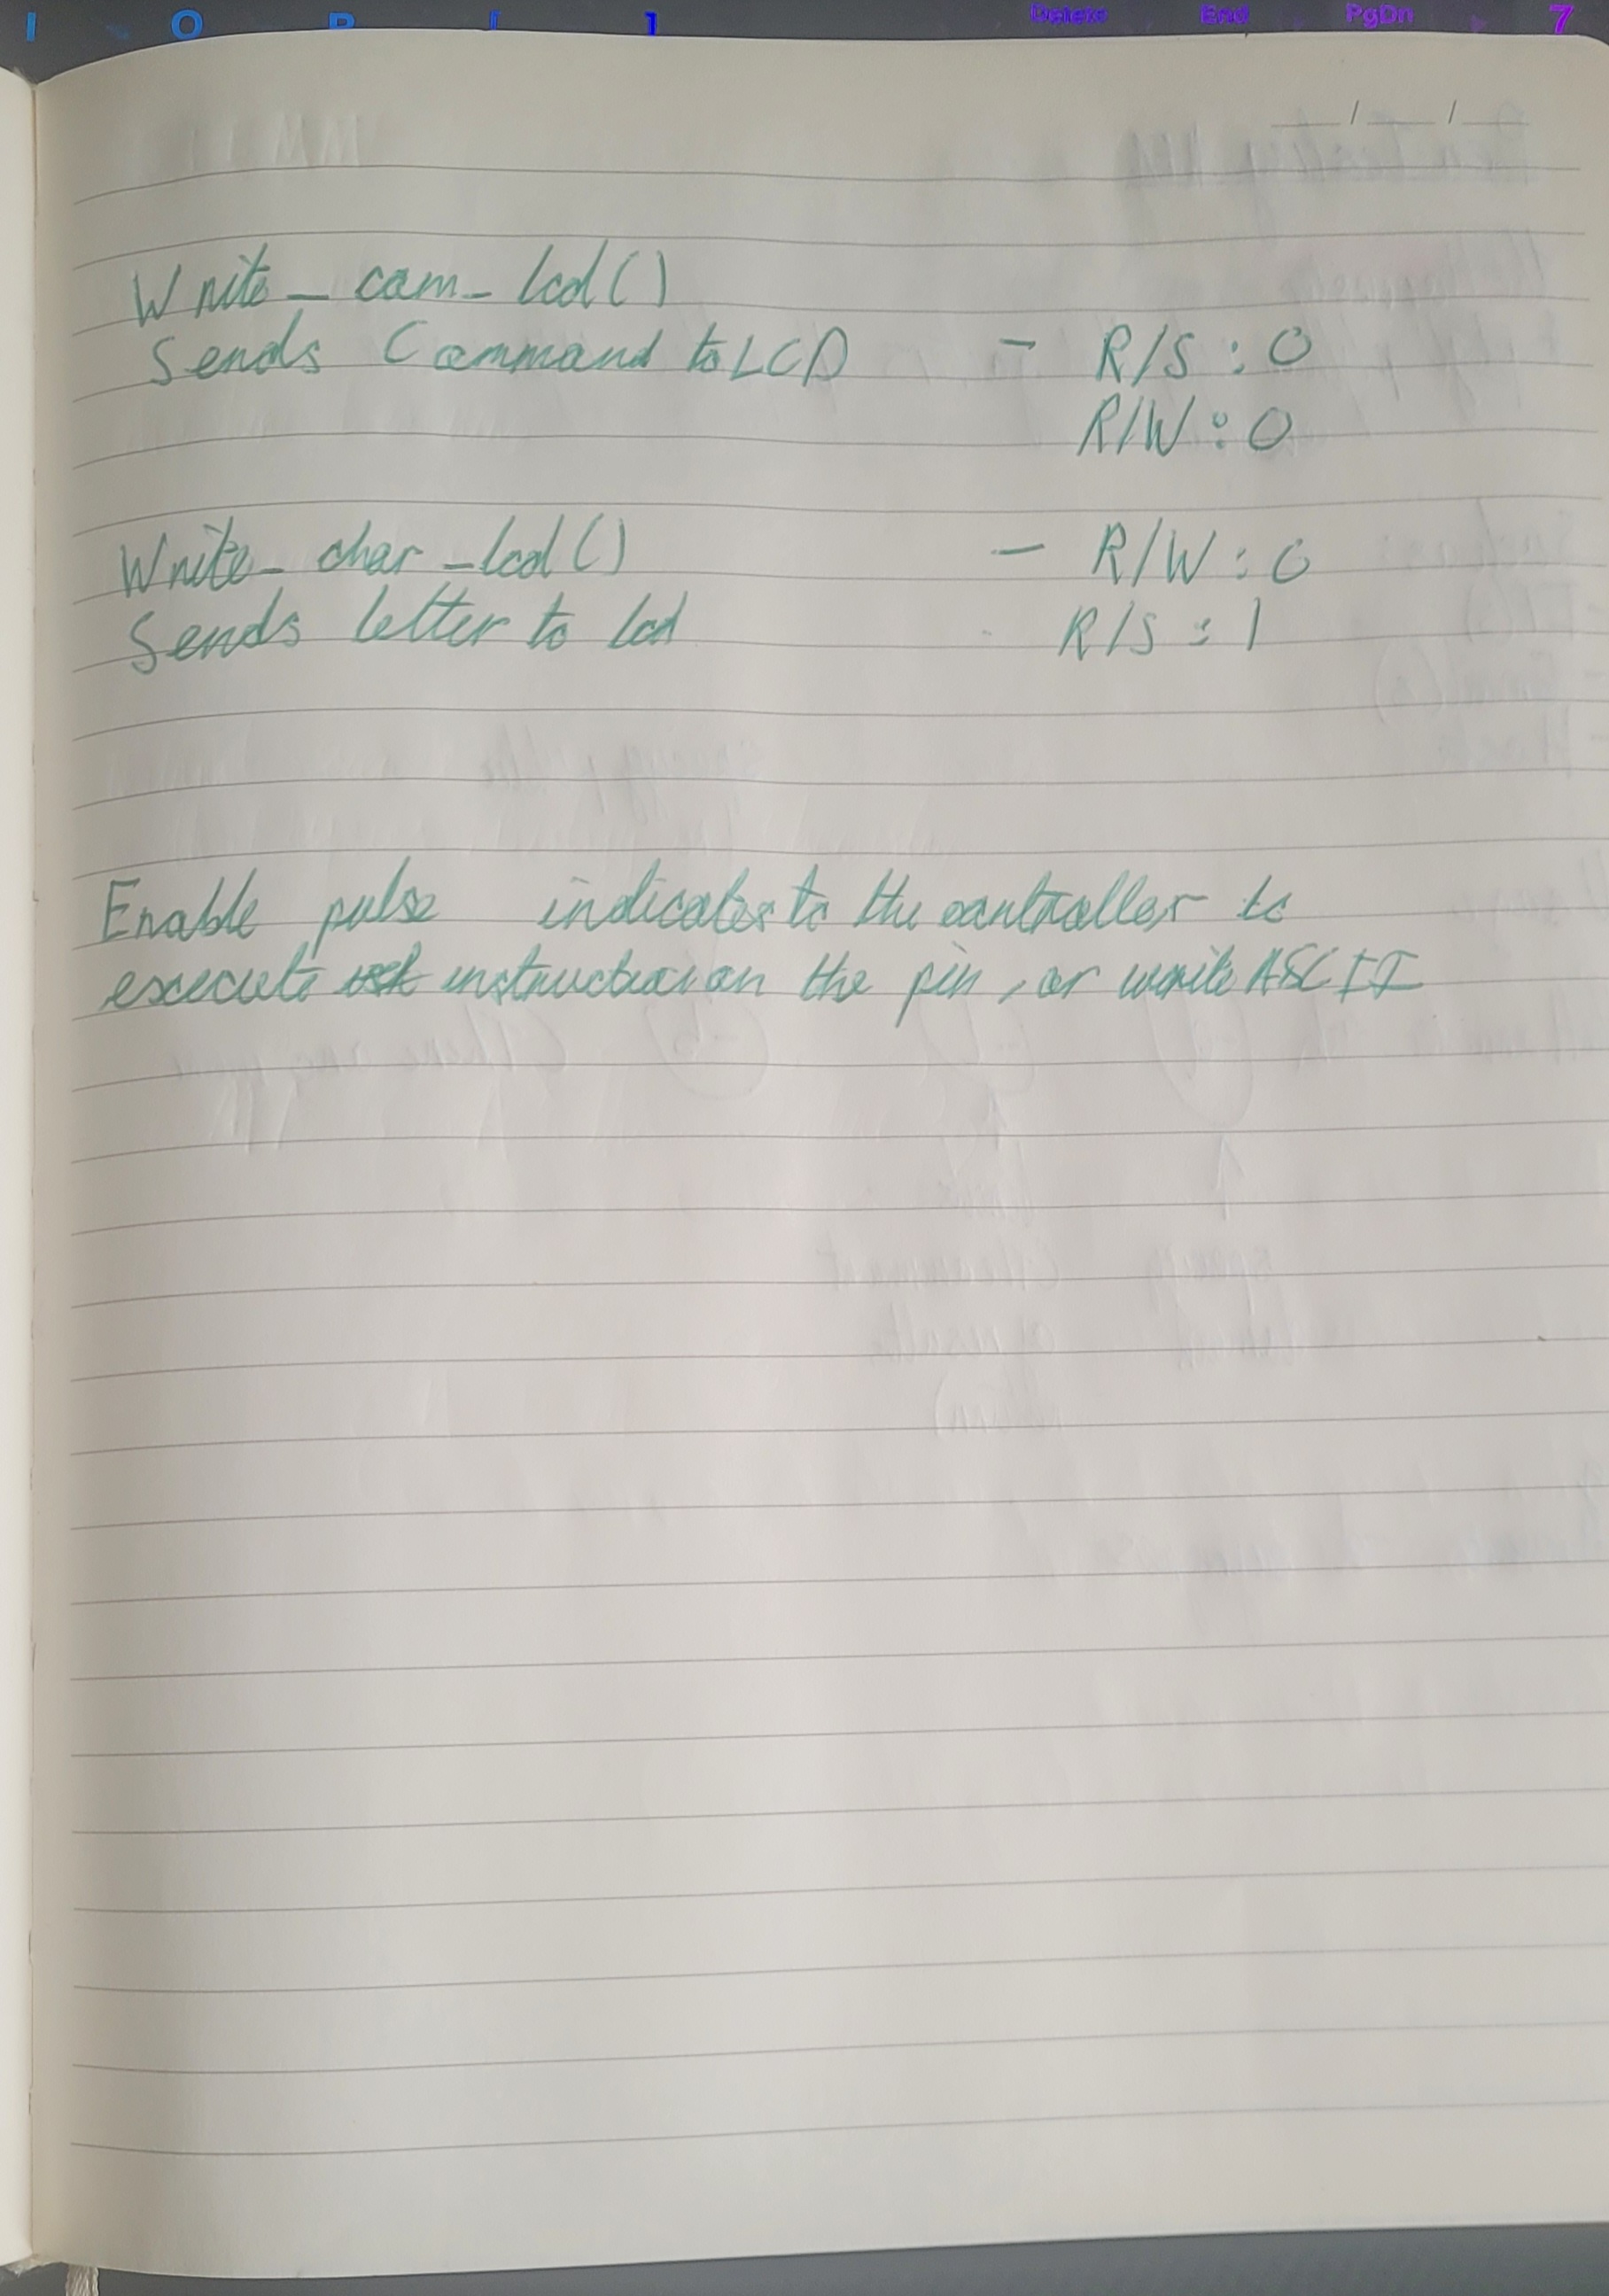 I O P [ ] Delete End PgDn 7
Write_com_lcd()
Sends Command to LCD - R/S : 0
R/W : 0
Write_char_lcd() - R/W : 0
Sends letter to lcd - R/S : 1
Enable pulse indicates to the controller to
execute instruction on the pin, or write ASCII